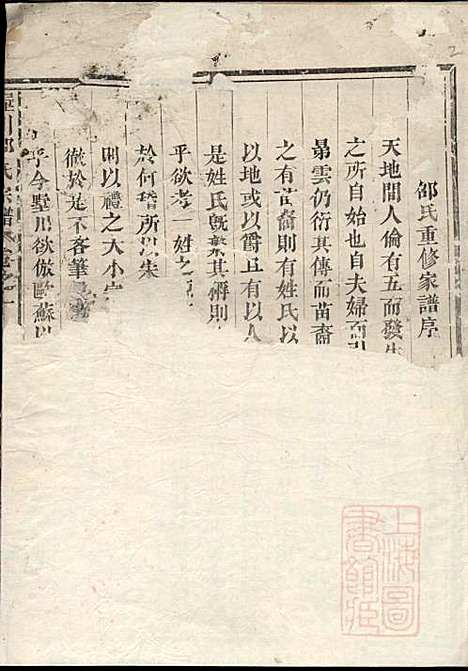 邵氏重修家譜序
天地間人倫有五而發生
之所自始也自夫婦而引
昴雲仍衍其傳而苗裔
之有苗裔則有姓氏以
以地或以爵且有以人
是姓氏旣棼其辨則
乎欲考一姓之
於何稽所以朱
困以禮之大小宗
徹於是不吝筆墨
乎今墅川欲倣歐蘇以
墅川邵氏宗譜
上海圖
書館藏